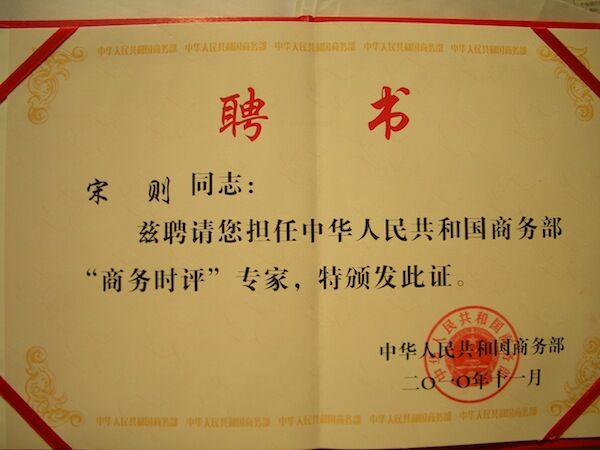 中华人民共和国商务部 中华人民共和国商务部 中华人民共和国商务部 中华人民共和国商务部 中华人民共和国商务部
聘 书
宋 则 同志：
兹聘请您担任中华人民共和国商务部
“商务时评”专家，特颁发此证。
中华人民共和国商务部
中华人民共和国商务部
二〇一〇年十一月
中华人民共和国商务部 中华人民共和国商务部 中华人民共和国商务部 中华人民共和国商务部 中华人民共和国商务部